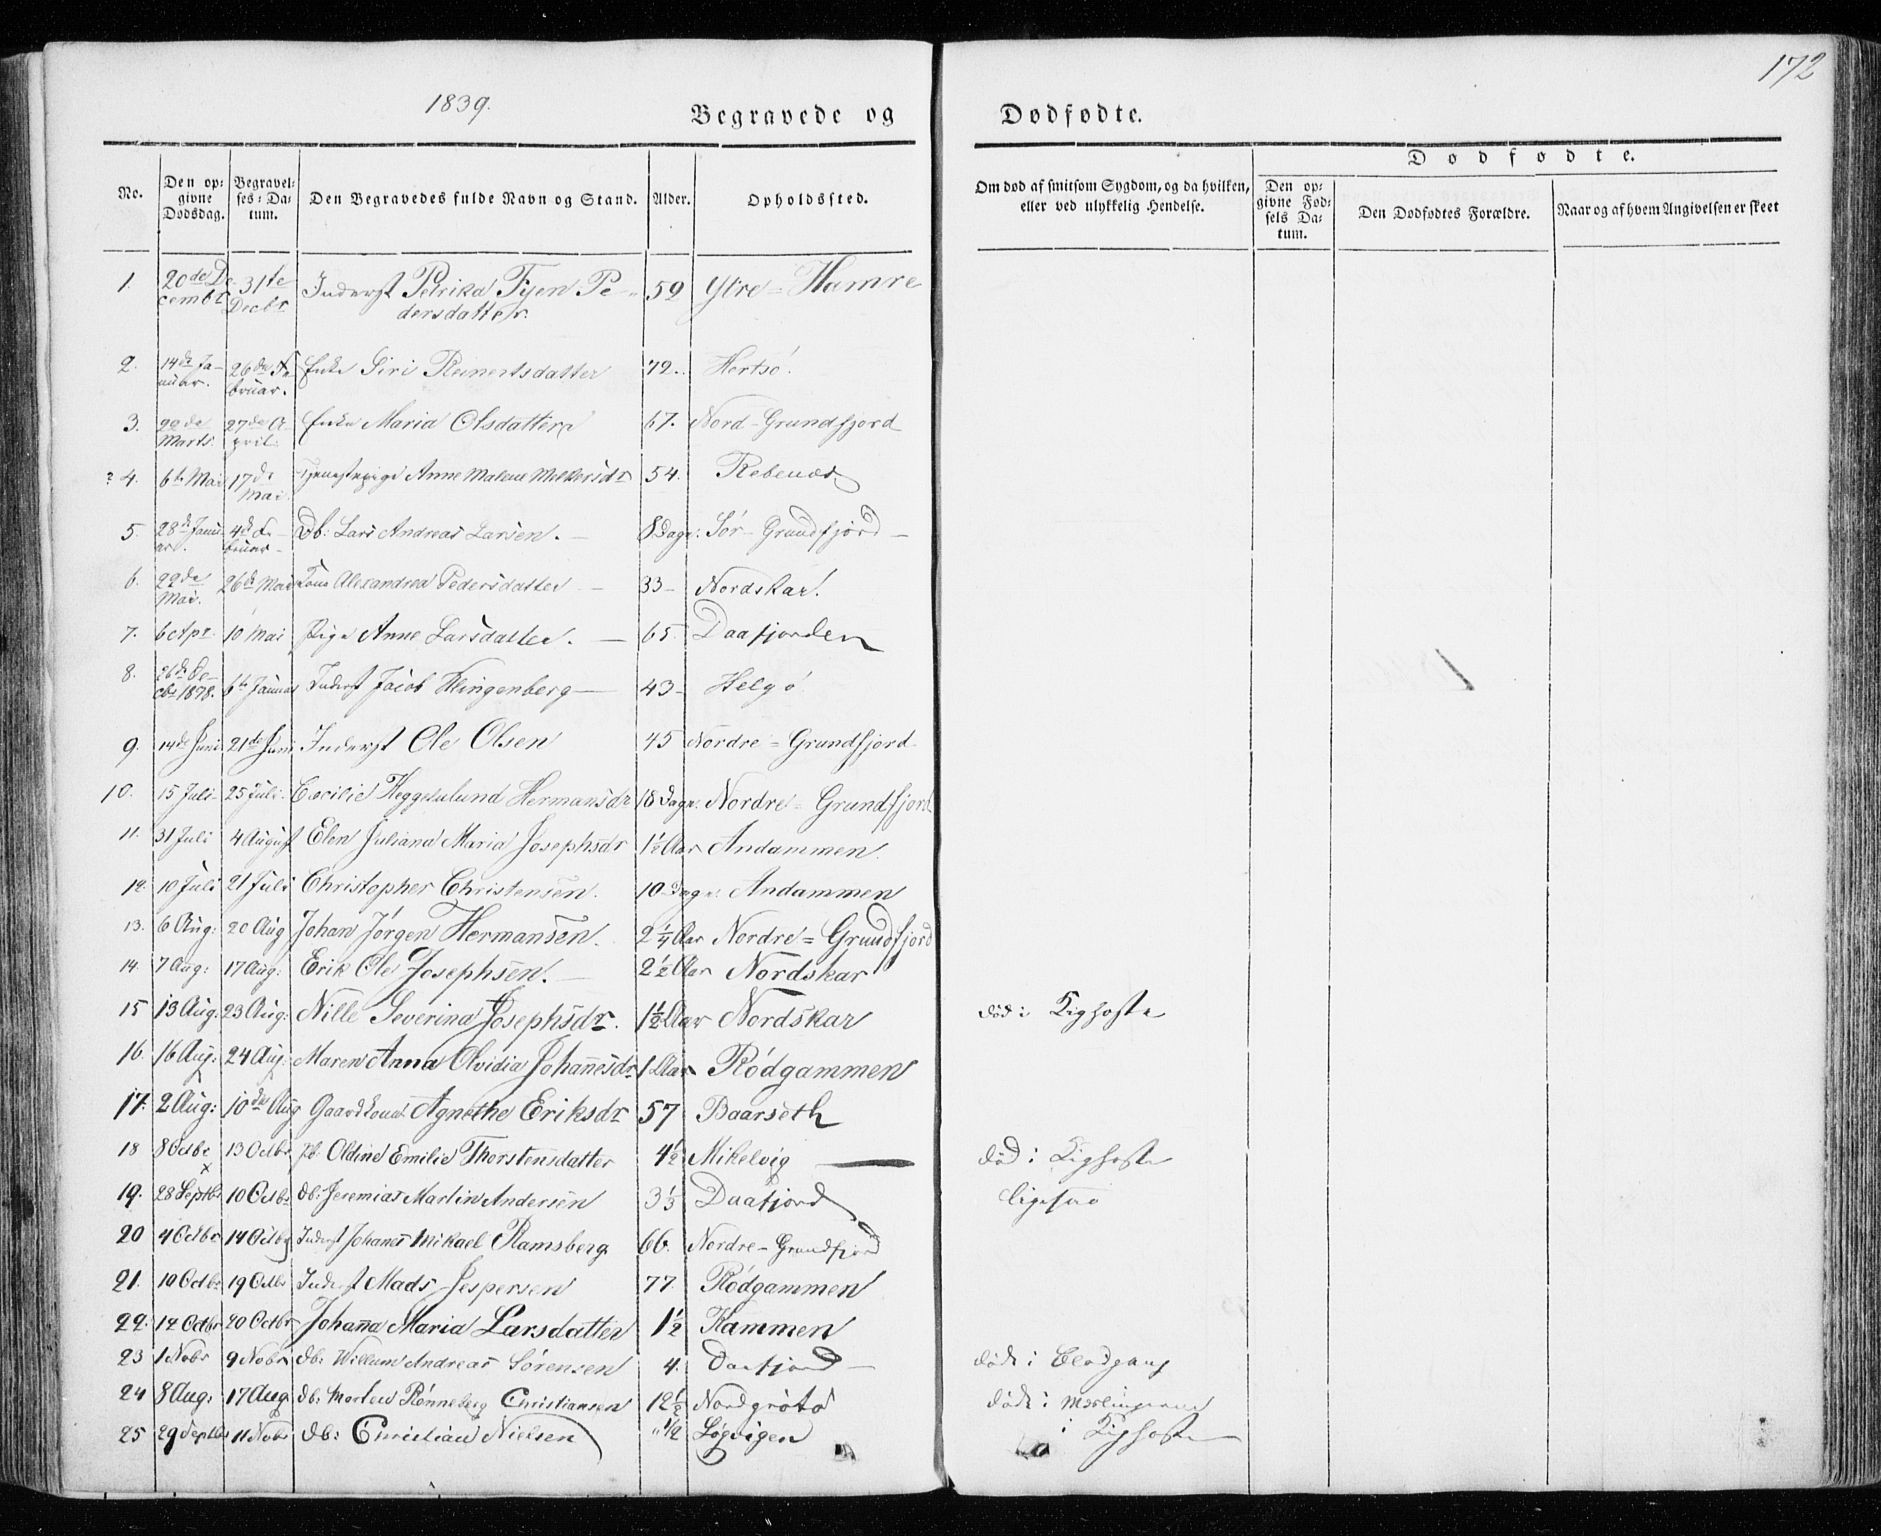 172
1839.
Begravede og Dødfødte.
Dødfødte.
No.
Den opgivne Dødsdag.
Begravelses-Datum.
Den Begravedes fulde Navn og Stand.
Alder.
Opholdssted.
Om død af smitsom Sygdom, og da hvilken, eller ved ulykkelig Hendelse.
Den opgivne Fødsels Datum.
Den Dødfødtes Forældre.
Naar og af hvem Angivelsen er skeet
1. 20de December 31te Decbr. Inderst Petrika Fyen Pedersdatter. 59 Ytre=Hamre
2. 14de Januar. 26de Februar. Enke Siri Reinertsdatter 72. Hertsö.
3. 22de Marts. 27de April. Enke Maria Olsdatter 67. Nord-Grundfjord
4. 6te Mai 17de Mai Tjenestepige Anne Malene Melkersdr 54. Rebenæs
5. 28de Januar. 4de Februar Db: Lars Andreas Larsen. 8 Dage: Sør-Grundfjord
6. 22de Mai. 26de Mai Kone Alexandrea Pedersdatter 33 Nordskar.
7. 6 Apr. 10 Mai Pige Anne Larsdatter. 65 Daafjorden
8. 26de Decbr 1878. 6te Januar Inderst Jacob Klingenberg 43 Helgö
9. 14de Juni 21de Juni Inderst Ole Olsen 45 Nordre=Grundfjord
10. 15 Juli 25 Juli Cæcilie Heggelund Hermansdr 18 Dage: Nordre=Grundfjord
11. 31 Juli 4 August Elen Juliana Maria Josephsdr 1½ Aar Andammen.
12. 10 Juli 21 Juli Christopher Christensen. 10 Dage: Andammen
13. 6 Aug: 20 Aug Johan Jörgen Hermansen. 2¼ Aar Nordre=Grundfjord
14. 7 Aug: 17 Aug: Erik Ole Josephsen. 2½ Aar Nordskar
15 13 Aug: 23 Aug: Nille Severina Josephsdr. 1½ Aar Nordskar død i Kighoste
16. 16 Aug: 24 Aug: Maren Anna Olvidia Johannesdr 1 Aar Rödgammen
17. 2 Aug: 10de Aug Gaardkone Agnethe Eriksdr 57 Baarseth
18 8 Octbr 13 Octbr Pb. Oldine Emilie Thorstensdatter 4½ Mikelvig død i Kighoste
19. 28 Septbr 10 Octbr Db: Jeremias Martin Andersen 3⅓ Daafjord ligesaa
20 4 Octbr 14 Octbr Inderst Johanes Mikael Ramsberg 66. Nordre-Grundfjord
21. 10 Octbr 19 Octbr Inderst Mads Jespersen 77. Rödgammen
22. 12 Octbr 20 Octbr Johana Maria Larsdatter 1½ Kammen
23 1 Nobr 9 Nobr Db: Willum Andreas Sørensen 4. Daafjord døde i Blodgang
24 8 Aug: 17 Aug Db: Morten Rönneberg Christiansen 12½ Nordgrötö døde i Meslingerne
25 29 Septbr 11 Nobr Db: Christian Nielsen ½ Løgvigen i Kighoste